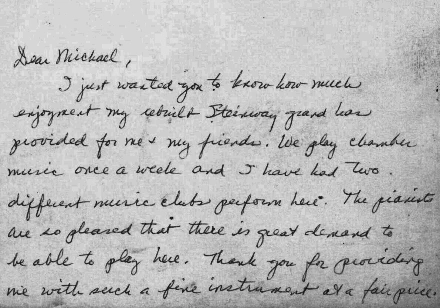 Dear Michael,
I just wanted you to know how much
enjoyment my rebuilt Steinway grand has
provided for me & my friends. We play chamber
music once a week and I have had two
different music clubs perform here. The pianists
are so pleased that there is great demand to
be able to play here. Thank you for providing
me with such a fine instrument at a fair price.